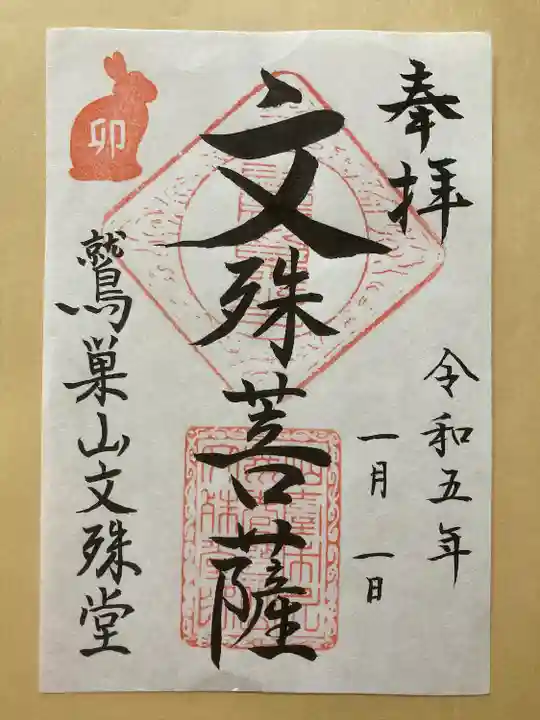 奉拝
令和五年
一月一日
文殊菩薩
鷲巣山文殊堂
卯